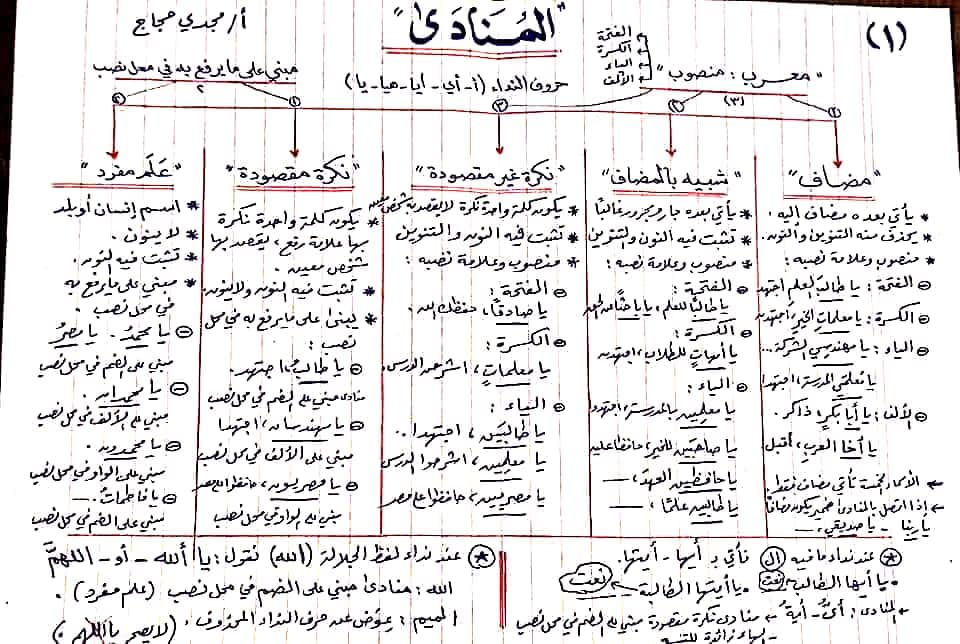 (١)
"المُنَادَى"
أ/ مجدي حجاج
"معرب: منصوب"
الفتحة
الكسرة
الياء
الألف
(٣)
حروف النداء (أ - أي - أيا - هيا - يا)
مبني على ما يرفع به في محل نصب
٢
"مضاف"
* يأتي بعده مضاف إليه.
* يحذف منه التنوين والنون.
* منصوب وعلامة نصبه:
⊖ الفتحة: يا طالبَ العلم اجتهد
⊖ الكسرة: يا معلماتِ الخير، اجتهدن
⊖ الياء: يا مهندسي الشركة...
يا معلمَي المدرسة، اجتهدا
⊖ الألف: يا أبا بكرٍ، ذاكر.
يا أخا العرب، أقبل
← الأسماء الخمسة تأتي مضاف فقط
← إذا اتصل بالمنادى ضمير يكون مضافًا
يا ربنا - يا صديقي، ...
"شبيه بالمضاف"
* يأتي بعده جار ومجرور غالبًا
* تثبت فيه النون والتنوين
* منصوب وعلامة نصبه:
⊖ الفتحة:
يا طالبًا للعلم، يا باحثًا عن الحق
⊖ الكسرة:
يا أمهاتٍ للطلاب، اجتهدن
⊖ الياء:
يا معلمين بالمدرسة، اجتهدوا
يا صاحبَين للخير، حافظا عليه
يا حافظين العهد، —
يا طالبين علمًا، —
"نكرة غير مقصودة"
* يكون كلمة واحدة نكرة لا يقصد بها شخص معين
* تثبت فيه النون والتنوين
* منصوب وعلامة نصبه:
⊖ الفتحة:
يا صادقًا، حفظك الله.
⊖ الكسرة:
يا معلماتٍ، اشرحن الدرس.
⊖ الياء:
يا طالبَين، اجتهدا.
يا معلمِين، اشرحوا الدرس
يا مصريين، حافظوا على مصر
"نكرة مقصودة"
* يكون كلمة واحدة نكرة
بها علامة رفع، يقصد بها
شخص معين.
* تثبت فيه النون ولا ينون.
* يُبنى على ما يرفع به في محل
نصب:
⊖ يا طالبُ، اجتهد.
منادى مبني على الضم في محل نصب
⊖ يا مهندسان، اجتهدا
مبني على الألف في محل نصب
⊖ يا مصريون، حافظوا على مصر
مبني على الواو في محل نصب
"عَلَم مفرد"
* اسم إنسان أو بلد
* لا ينون.
* تثبت فيه النون.
* مبني على ما يرفع به
في محل نصب.
⊖ يا محمدُ. يا مصرُ
مبني على الضم في محل نصب
⊖ يا محمدان.
مبني على الألف في محل نصب
⊖ يا محمدون.
مبني على الواو في محل نصب
⊖ يا فاطماتُ. —
مبني على الضم في محل نصب
* عند نداء ما فيه (ال) نأتي بـ أيها - أيتها.
• يا أيها الطالب ← نعت يا أيتها الطالبة ← نعت
← المنادى: أيُّ - أيةُ ← منادى نكرة مقصودة مبني على الضم في محل نصب
* عند نداء لفظ الجلالة (الله) نقول: يا الله - أو - اللهمَّ
الله: منادى مبني على الضم في محل نصب (علم مفرد).
الميم: عِوَض عن حرف النداء المحذوف، (لا يصح يا اللهم).